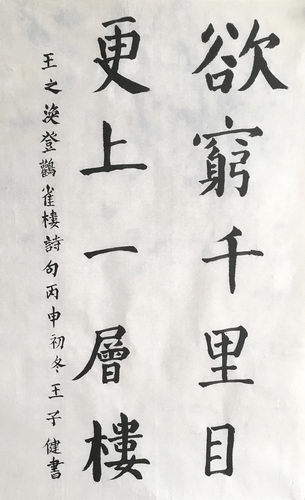 欲窮千里目
更上一層樓
王之渙登鸛雀樓詩句丙申初冬王子健書